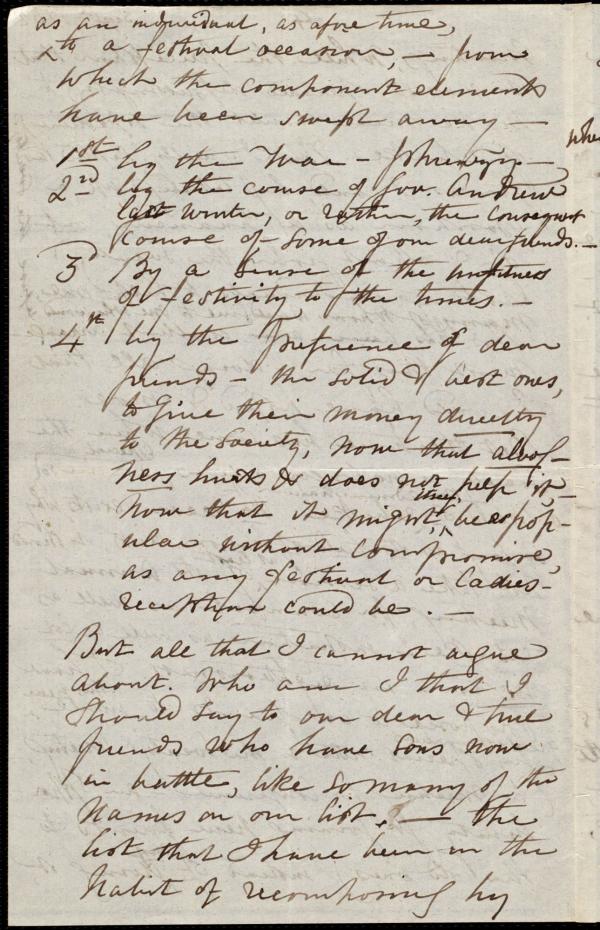 as an individual, as afore time,
^ to a festival occasion, — from
which the component elements
have been swept away —
1st by the War —
2nd by the course of Gov. Andrew
last winter, or rather, the consequent
course of some of our dear friends. —
3d By a sense of the unfitness
of festivity to the times. —
4th by the preference of dear
friends — the solid & best ones,
to give their money directly
to the Society, now that aloof-
ness hurts & does not help it, —
now that it might, thus, be as pop-
ular without compromise,
as any festival or Ladies-
reception could be. —
But all that I cannot argue
about. Who am I that I
should say to our dear & true
friends who have sons now
in battle, like so many of the
names on our list, — the
list that I have been in the
habit of recomposing by